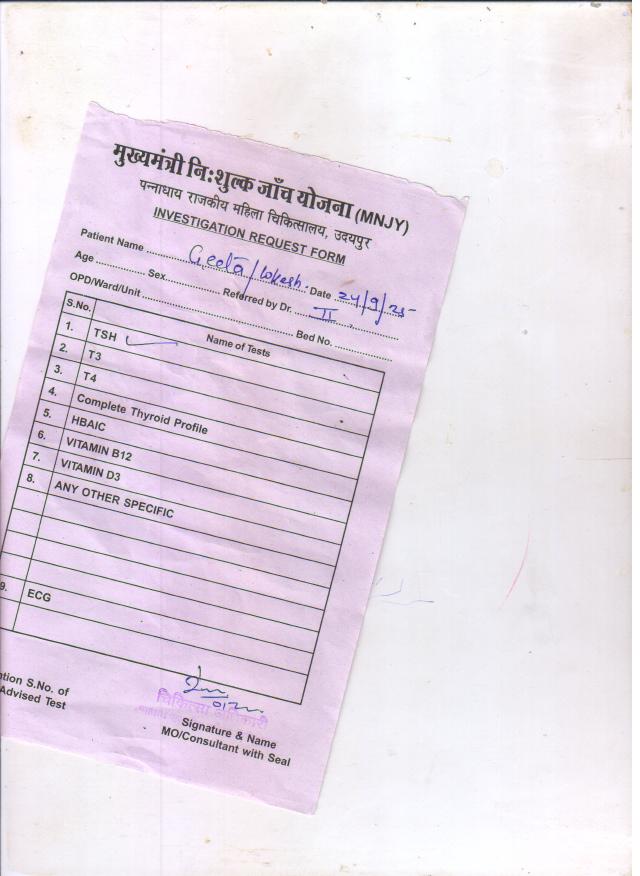 मुख्यमंत्री नि:शुल्क जाँच योजना (MNJY)
पन्नाधाय राजकीय महिला चिकित्सालय, उदयपुर
INVESTIGATION REQUEST FORM
Patient Name Geeta/Lokesh Date 24/9/25
Age Sex Referred by Dr. II
OPD/Ward/Unit Bed No.
S.No. Name of Tests
1. TSH
2. T3
3. T4
4. Complete Thyroid Profile
5. HBAIC
6. VITAMIN B12
7. VITAMIN D3
8. ANY OTHER SPECIFIC
9. ECG
ntion S.No. of
Advised Test
चिकित्सा अधिकारी
Signature & Name
MO/Consultant with Seal